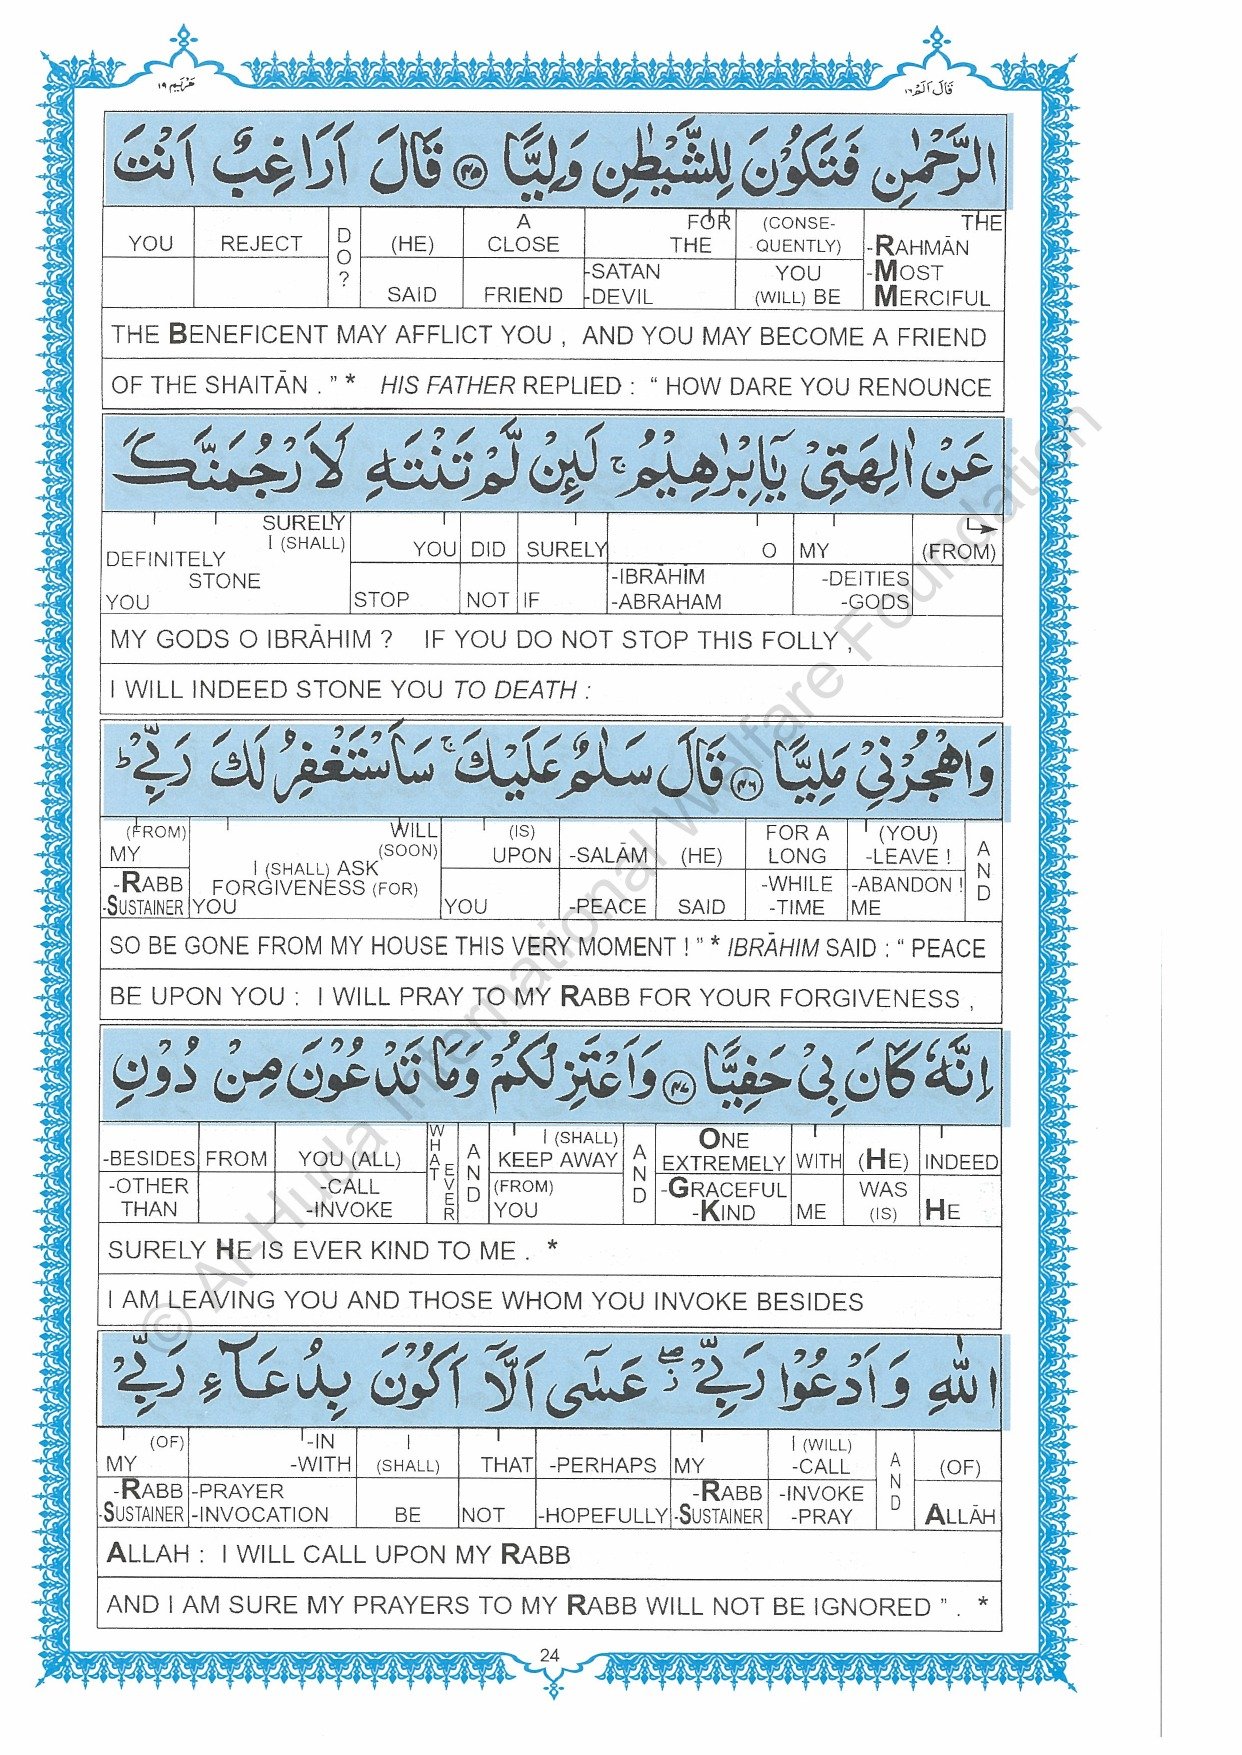 مَرْيَم ١٩
قَالَ اَلَمْ ١٦
الرَّحْمٰنِ فَتَكُوْنَ لِلشَّيْطٰنِ وَلِيًّا ﴿٤٥﴾ قَالَ اَرَاغِبٌ اَنْتَ
YOU REJECT DO? (HE) SAID A CLOSE FRIEND FOR THE -SATAN -DEVIL (CONSE-QUENTLY) YOU (WILL) BE THE -RAHMĀN -MOST MERCIFUL
THE BENEFICENT MAY AFFLICT YOU , AND YOU MAY BECOME A FRIEND
OF THE SHAITĀN . ” * HIS FATHER REPLIED : “ HOW DARE YOU RENOUNCE
عَنْ اٰلِهَتِيْ يٰٓاِبْرٰهِيْمُ ۚ لَئِنْ لَّمْ تَنْتَهِ لَاَرْجُمَنَّكَ
SURELY I (SHALL) DEFINITELY STONE YOU YOU STOP DID NOT SURELY IF O -IBRĀHĪM -ABRAHAM MY -DEITIES -GODS (FROM)
MY GODS O IBRĀHIM ? IF YOU DO NOT STOP THIS FOLLY ,
I WILL INDEED STONE YOU TO DEATH :
وَاهْجُرْنِيْ مَلِيًّا ﴿٤٦﴾ قَالَ سَلٰمٌ عَلَيْكَ ۚ سَاَسْتَغْفِرُ لَكَ رَبِّيْ ؕ
(FROM) MY -RABB -SUSTAINER WILL (SOON) I (SHALL) ASK FORGIVENESS (FOR) YOU (IS) UPON YOU -SALĀM -PEACE (HE) SAID FOR A LONG -WHILE -TIME (YOU) -LEAVE ! -ABANDON ! ME AND
SO BE GONE FROM MY HOUSE THIS VERY MOMENT ! ” * IBRĀHIM SAID : “ PEACE
BE UPON YOU : I WILL PRAY TO MY RABB FOR YOUR FORGIVENESS ,
اِنَّهٗ كَانَ بِيْ حَفِيًّا ﴿٤٧﴾ وَاَعْتَزِلُكُمْ وَمَا تَدْعُوْنَ مِنْ دُوْنِ
-BESIDES -OTHER THAN FROM YOU (ALL) -CALL -INVOKE WHAT EVER AND I (SHALL) KEEP AWAY (FROM) YOU AND ONE EXTREMELY -GRACEFUL -KIND WITH ME (HE) WAS (IS) INDEED HE
SURELY HE IS EVER KIND TO ME . *
I AM LEAVING YOU AND THOSE WHOM YOU INVOKE BESIDES
اللّٰهِ وَاَدْعُوْا رَبِّيْ ۖز عَسٰٓى اَلَّآ اَكُوْنَ بِدُعَآءِ رَبِّيْ
(OF) MY -RABB -SUSTAINER -IN -WITH -PRAYER -INVOCATION I (SHALL) BE THAT NOT -PERHAPS -HOPEFULLY MY -RABB -SUSTAINER I (WILL) -CALL -INVOKE -PRAY AND (OF) ALLĀH
ALLAH : I WILL CALL UPON MY RABB
AND I AM SURE MY PRAYERS TO MY RABB WILL NOT BE IGNORED ” . *
24
© Al-Huda International Welfare Foundation